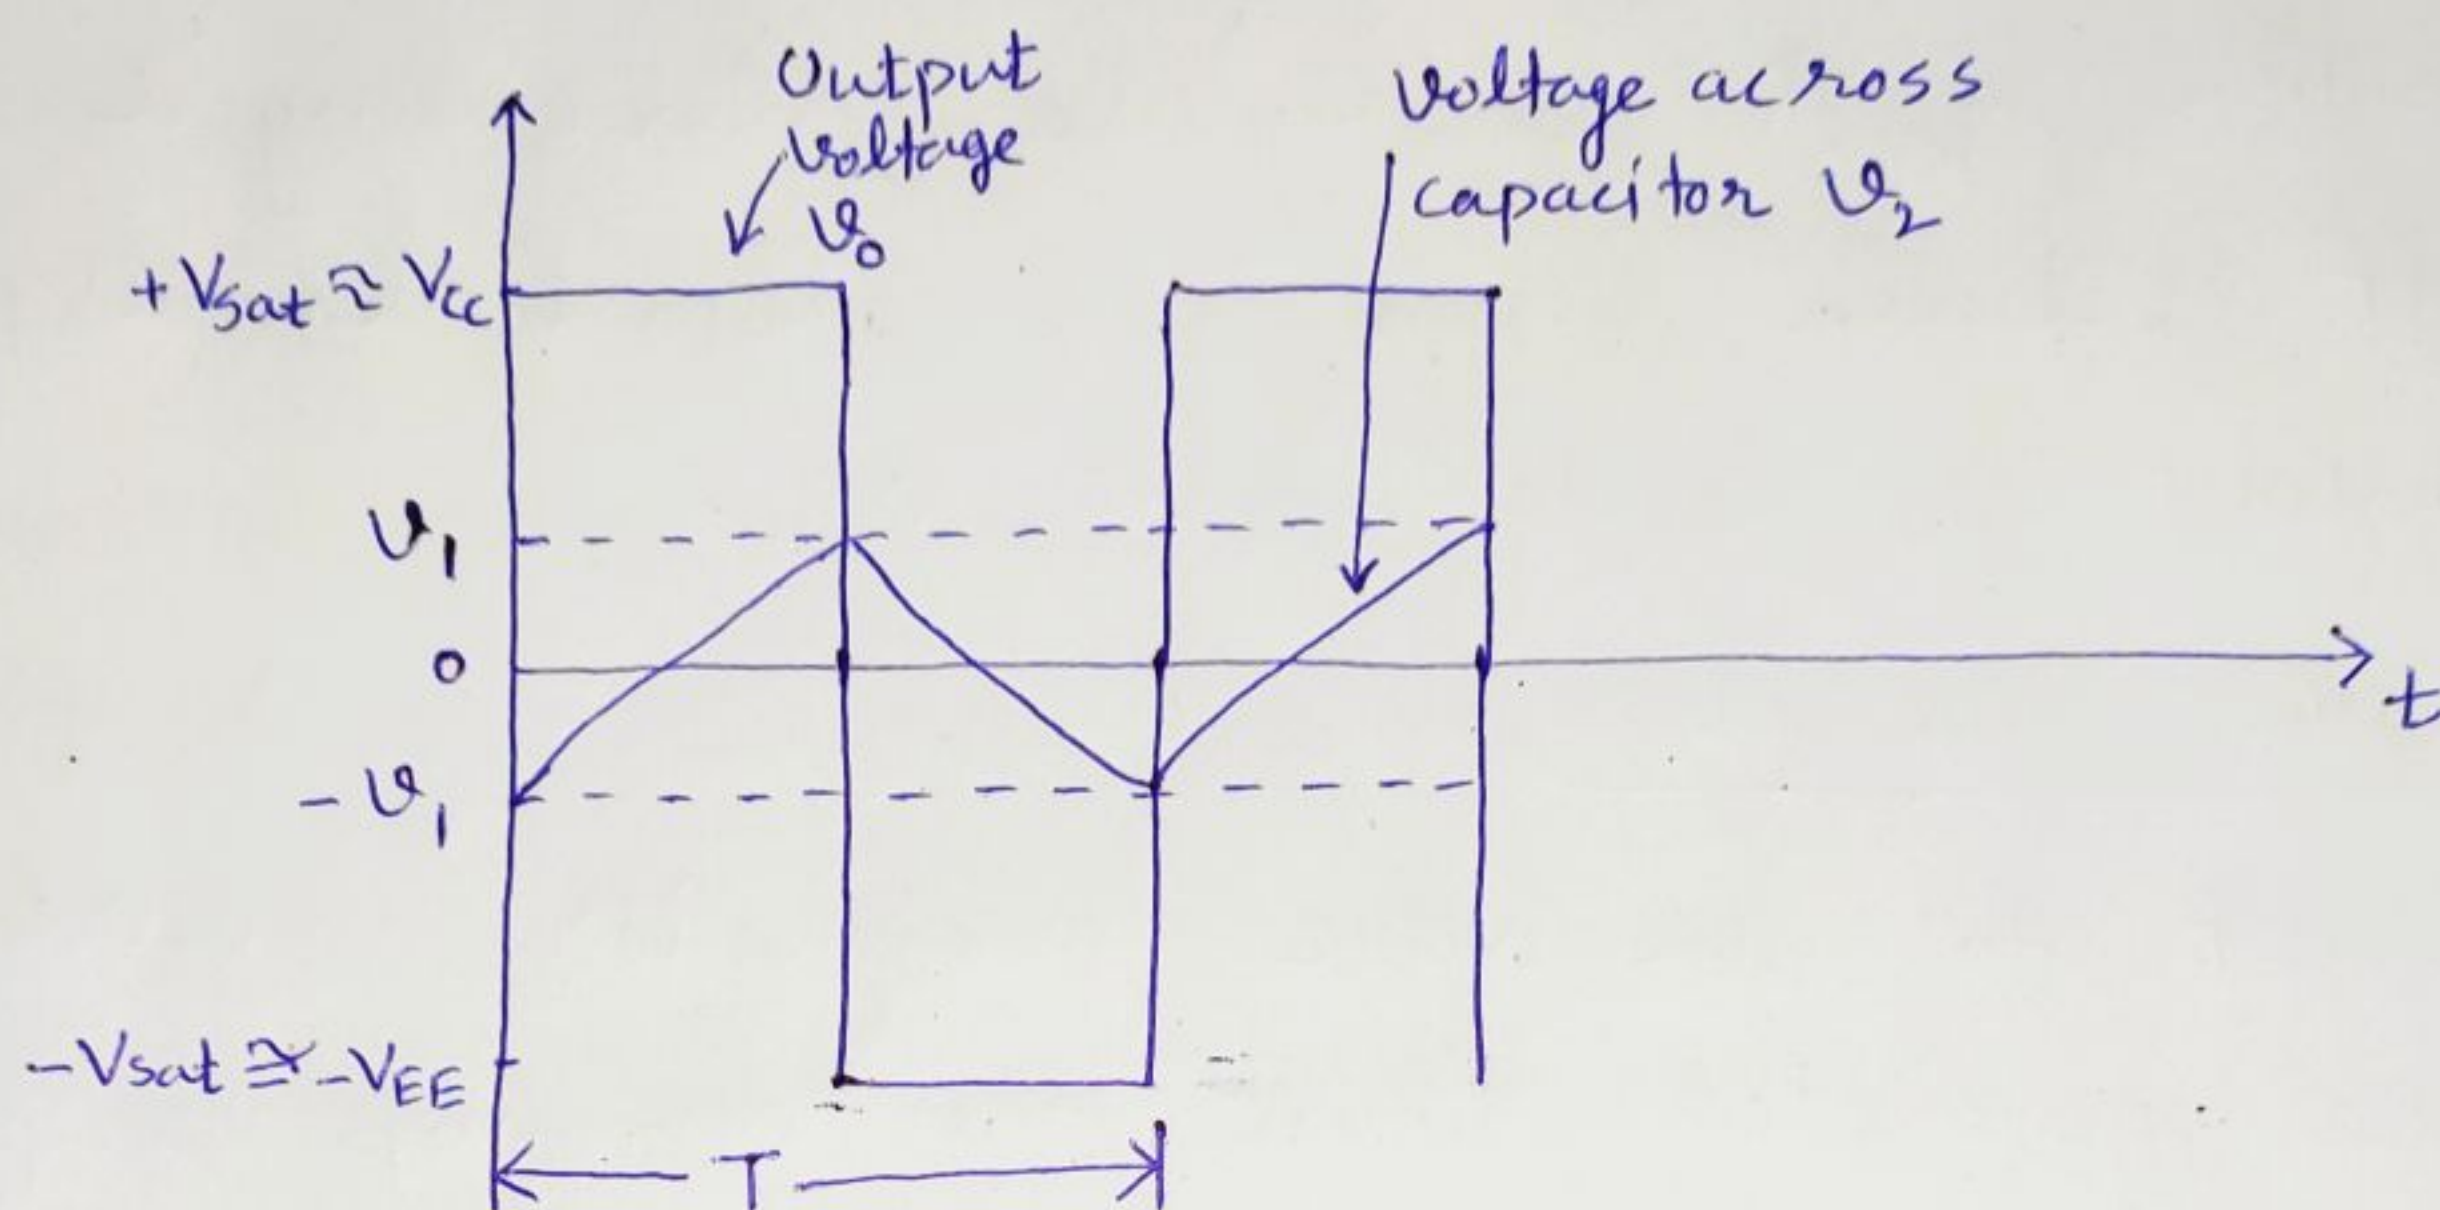 Output
voltage
v₀
voltage across
capacitor v₂
+Vsat ≈ Vcc
v₁
0
t
-v₁
-Vsat ≅ -VEE
T